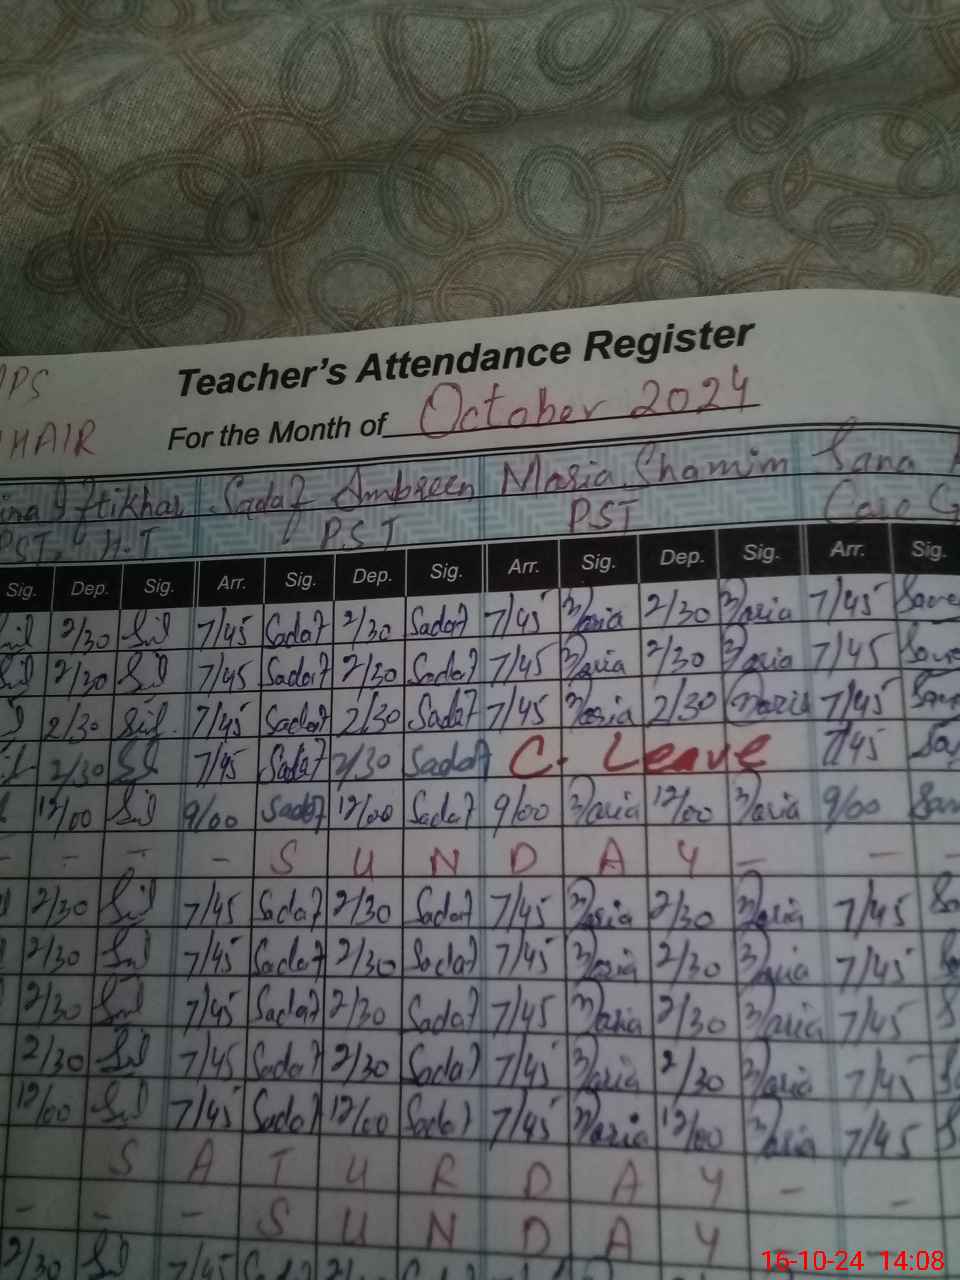 PS
Teacher's Attendance Register
HAIR
For the Month of October 2024
Iftikhar Sadaf Ambreen Maria Shamim Sana
PST H.T PST PST Care G
Sig. Dep. Sig. Arr. Sig. Dep. Sig. Arr. Sig. Dep. Sig. Arr. Sig.
2/30 7/45 Sadaf 2/30 Sadaf 7/45 Maria 2/30 Maria 7/45
2/30 7/45 Sadaf 2/30 Sadaf 7/45 Maria 2/30 Maria 7/45
2/30 7/45 Sadaf 2/30 Sadaf 7/45 Maria 2/30 Maria 7/45
2/30 7/45 Sadaf 2/30 Sadaf C. Leave 7/45
12/00 9/00 Sadaf 12/00 Sadaf 9/00 Maria 12/00 Maria 9/00
- - - - S U N D A Y - - -
2/30 7/45 Sadaf 2/30 Sadaf 7/45 Maria 2/30 Maria 7/45
2/30 7/45 Sadaf 2/30 Sadaf 7/45 Maria 2/30 Maria 7/45
2/30 7/45 Sadaf 2/30 Sadaf 7/45 Maria 2/30 Maria 7/45
2/30 7/45 Sadaf 2/30 Sadaf 7/45 Maria 2/30 Maria 7/45
12/00 7/45 Sadaf 12/00 Sadaf 7/45 Maria 12/00 Maria 7/45
S A T U R D A Y - -
- - - S U N D A Y
2/30 7/45
16-10-24 14:08